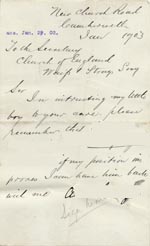 New Church Road
Camberwell
Jan 1903
Jan. 29. 03.
To the Secretary
Church of England
Waifs & Strays Socy
Sir
In intrusting my little
boy to your care please
remember that
if my position in
proves I can have him back
with me